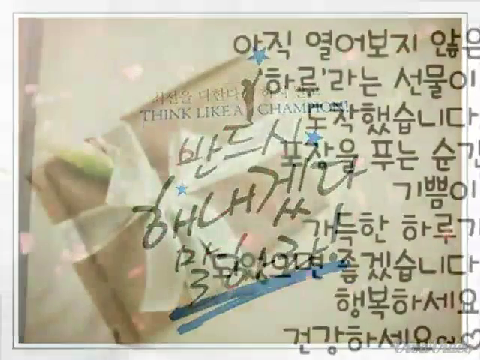 아직 열어보지 않은
'하루'라는 선물이
THINK LIKE A CHAMPION!
도착했습니다
반드시
포장을 푸는 순간
해내겠다
기쁨이
가득한 하루가
되었으면 좋겠습니다
행복하세요
건강하세요~